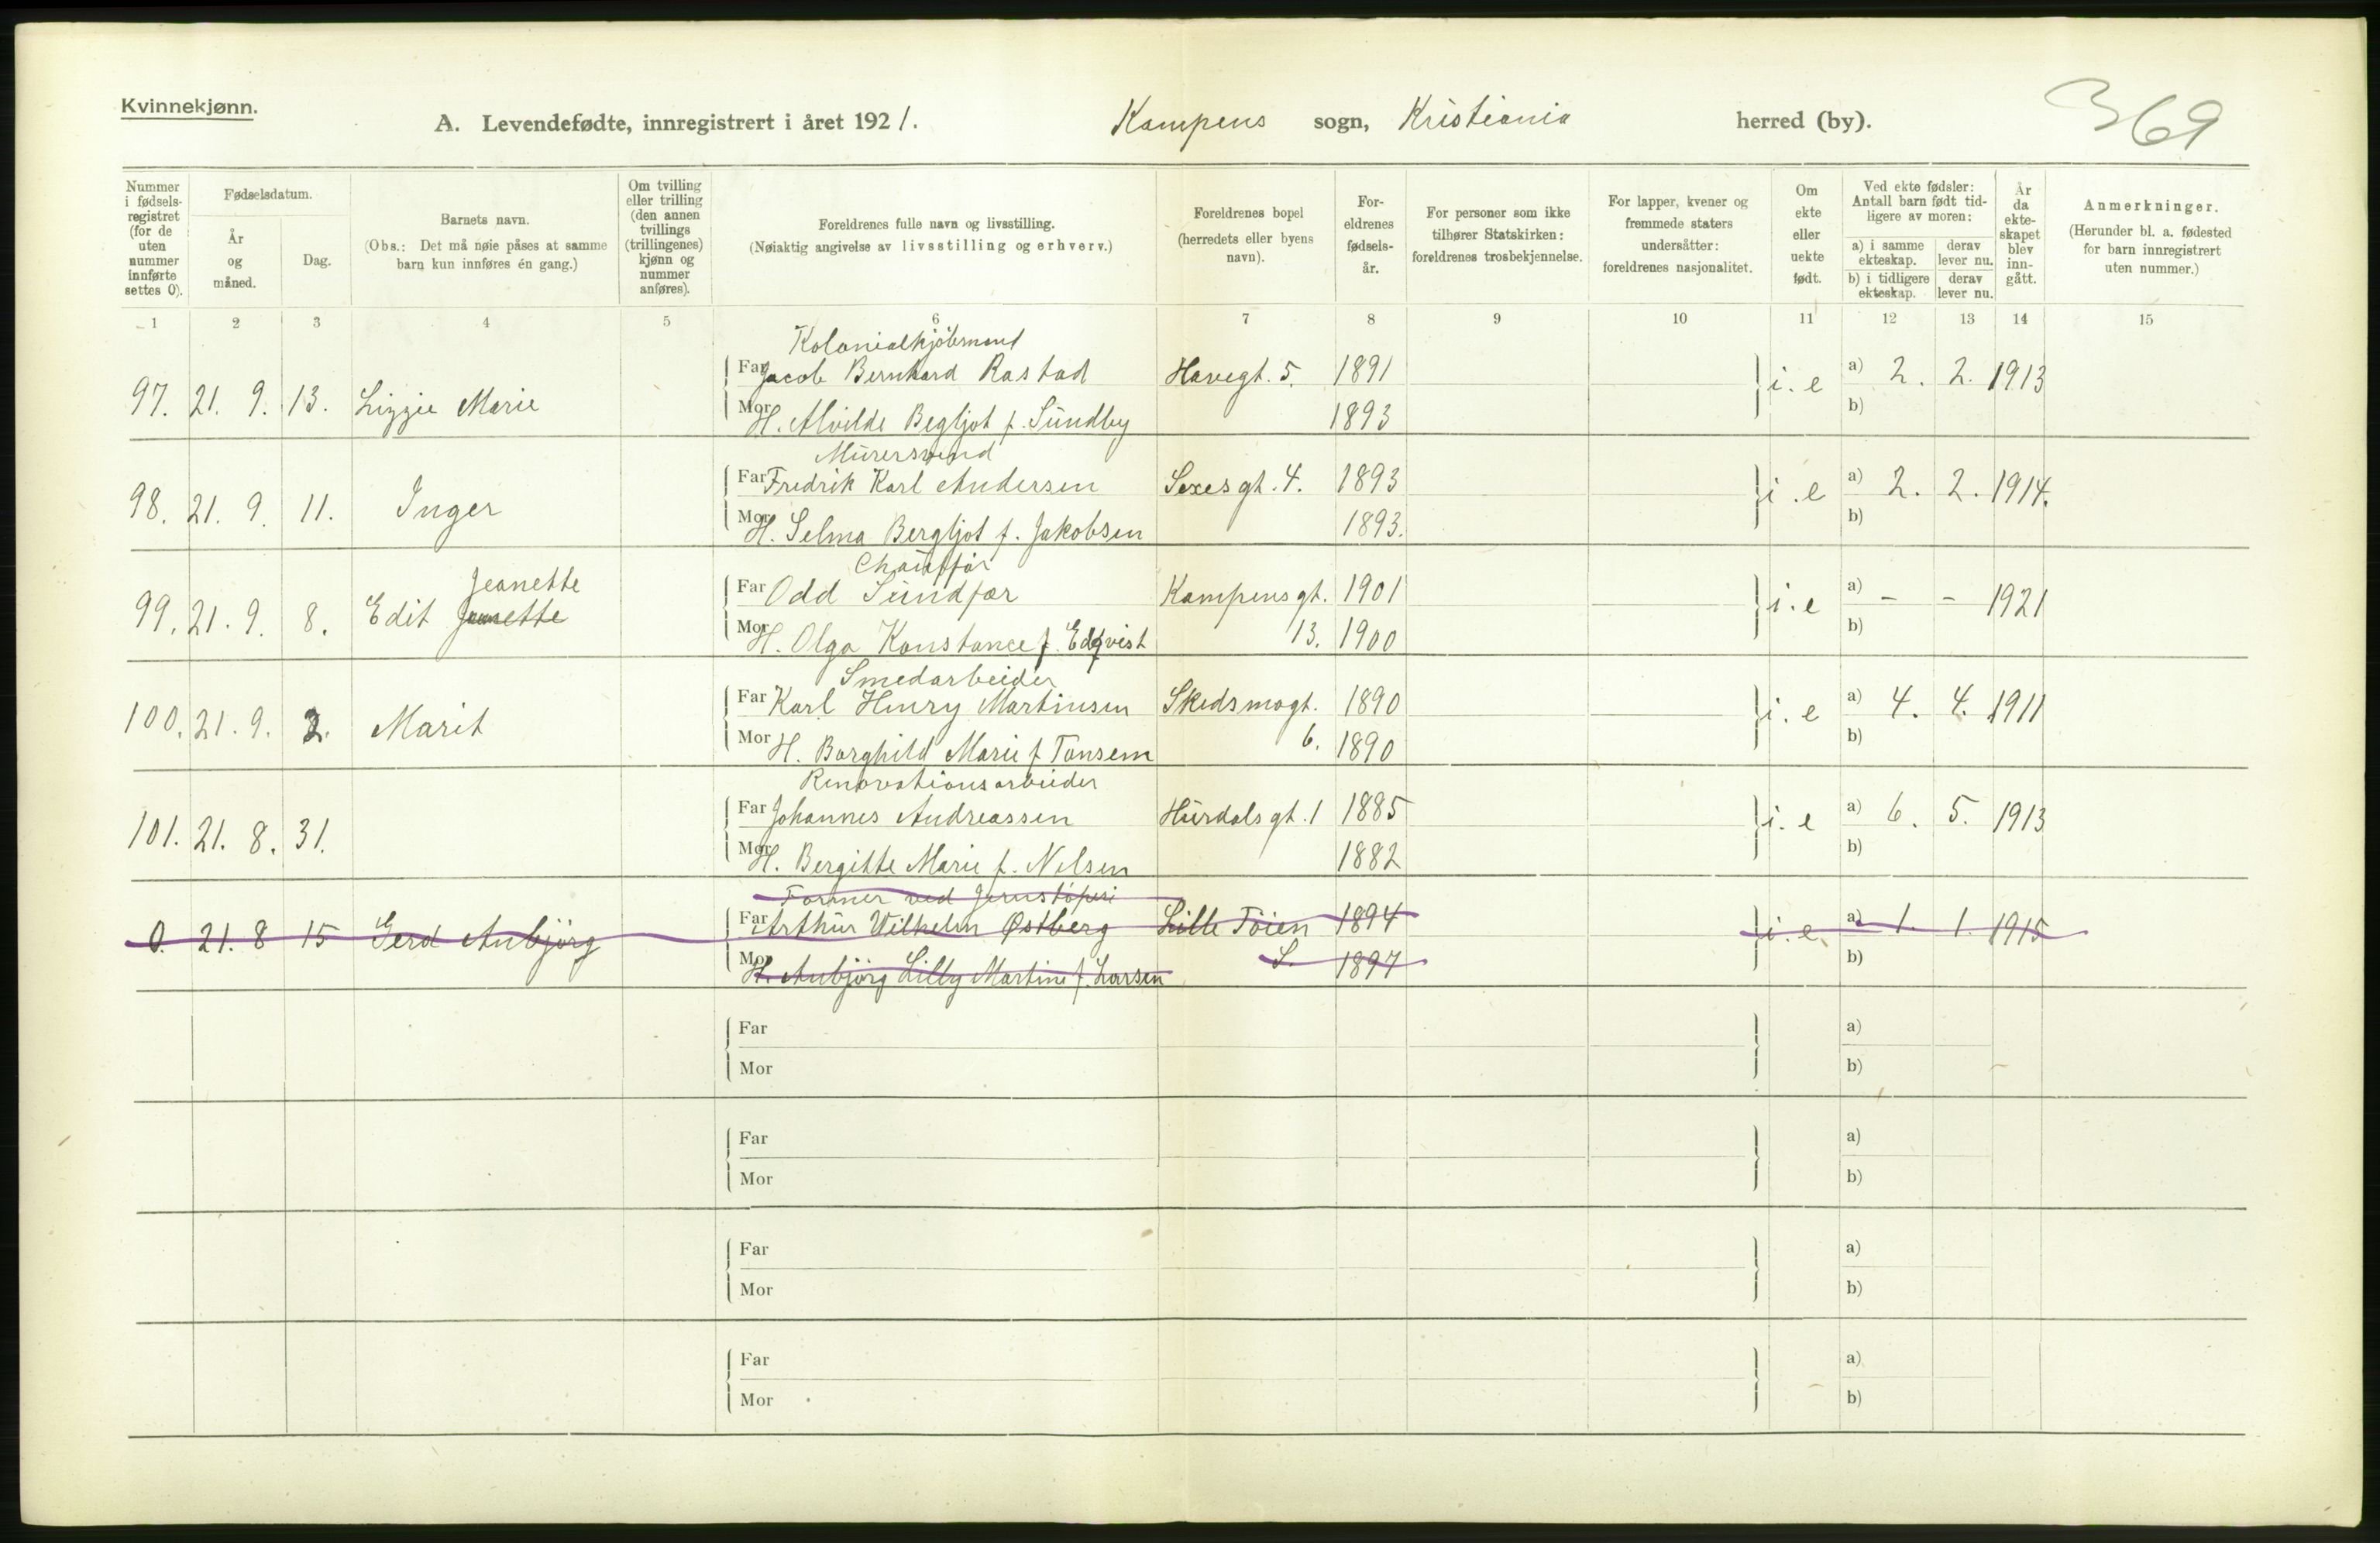 Kvinnekjønn.
A. Levendefødte, innregistrert i året 1921. Kampens sogn, Kristiania herred (by).
369
Nummer i fødselsregistret (for de uten nummer innførte settes 0).
Fødselsdatum.
År og måned.
Dag.
Barnets navn.
(Obs.: Det må nøie påses at samme barn kun innføres én gang.)
Om tvilling eller trilling (den annen tvillings (trillingenes) kjønn og nummer anføres).
Foreldrenes fulle navn og livsstilling.
(Nøiaktig angivelse av livsstilling og erhverv.)
Foreldrenes bopel (herredets eller byens navn).
Foreldrenes fødselsår.
For personer som ikke tilhører Statskirken: foreldrenes trosbekjennelse.
For lapper, kvener og fremmede staters undersåtter: foreldrenes nasjonalitet.
Om ekte eller uekte født.
Ved ekte fødsler: Antall barn født tidligere av moren:
a) i samme ekteskap. derav lever nu.
b) i tidligere ekteskap. derav lever nu.
År da ekteskapet blev inngått.
Anmerkninger.
(Herunder bl. a. fødested for barn innregistrert uten nummer.)
1 2 3 4 5 6 7 8 9 10 11 12 13 14 15
Kolonialkjöbmand
97. 21. 9. 13. Lizzie Marie Far Jacob Bernhard Rastad Havegt. 5. 1891 i. e a) 2. 2. 1913
Mor H. Alvilde Begljot f. Sundby 1893 b)
Murersvend
98. 21. 9. 11. Inger Far Fredrik Karl Andersen Sexesgt. 4. 1893 i. e a) 2. 2. 1914.
Mor H. Selma Bergljot f. Jakobsen 1893. b)
Chauffør
Jeanette
99. 21. 9. 8. Edit Far Odd Sundfær Kampensgt. 1901 i. e a) - - 1921
Mor H. Olga Konstance f. Edqvist 13. 1900 b)
Smedarbeider
100. 21. 9. 2. Marit Far Karl Henry Martinsen Skedsmogt. 1890 i. e a) 4. 4. 1911
Mor H. Borghild Marie f Tonsem 6. 1890 b)
Renovationsarbeider
101. 21. 8. 31. Far Johannes Andreassen Hurdalsgt. 1 1885 i. e a) 6. 5. 1913
Mor H. Bergitte Marie f. Nelsen 1882 b)
Former ved Jernstöperi
0. 21. 8 15 Gerd Anbjörg Far Arthur Wilhelm Østberg Lille Töien 1894 i. e a) 1. 1. 1915
Mor H. Anbjörg Lilly Martine f. Larsen S. 1897 b)
Far a)
Mor b)
Far a)
Mor b)
Far a)
Mor b)
Far a)
Mor b)